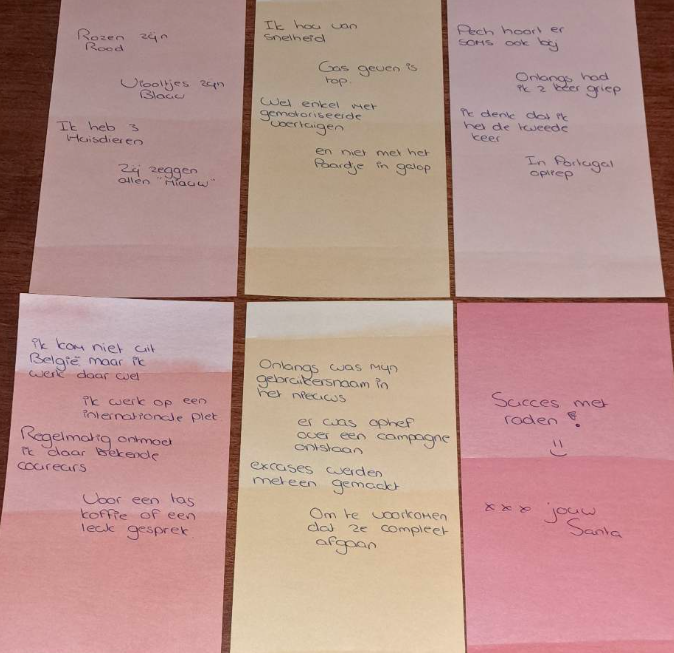 Rozen zijn
Rood
Viooltjes zijn
Blauw
Ik heb 3
Huisdieren
Zij zeggen
allen "Miauw"
Ik hou van
snelheid
Gas geven is
top.
Wel enkel met
gemotoriseerde
voertuigen
en niet met het
Paardje in galop
Pech hoort er
soms ook bij
Onlangs had
ik 2 keer griep
ik denk dat ik
het de tweede
keer
In Portugal
opliep
ik kom niet uit
België maar ik
werk daar wel
ik werk op een
internationale plek
Regelmatig ontmoet
ik daar bekende
coureurs
Voor een tas
koffie of een
leuk gesprek
Onlangs was mijn
gebruikersnaam in
het nieuws
er was ophef
over een campagne
ontstaan
excuses werden
meteen gemaakt
Om te voorkomen
dat ze compleet
afgaan
Succes met
raden !
x x x jouw
Santa